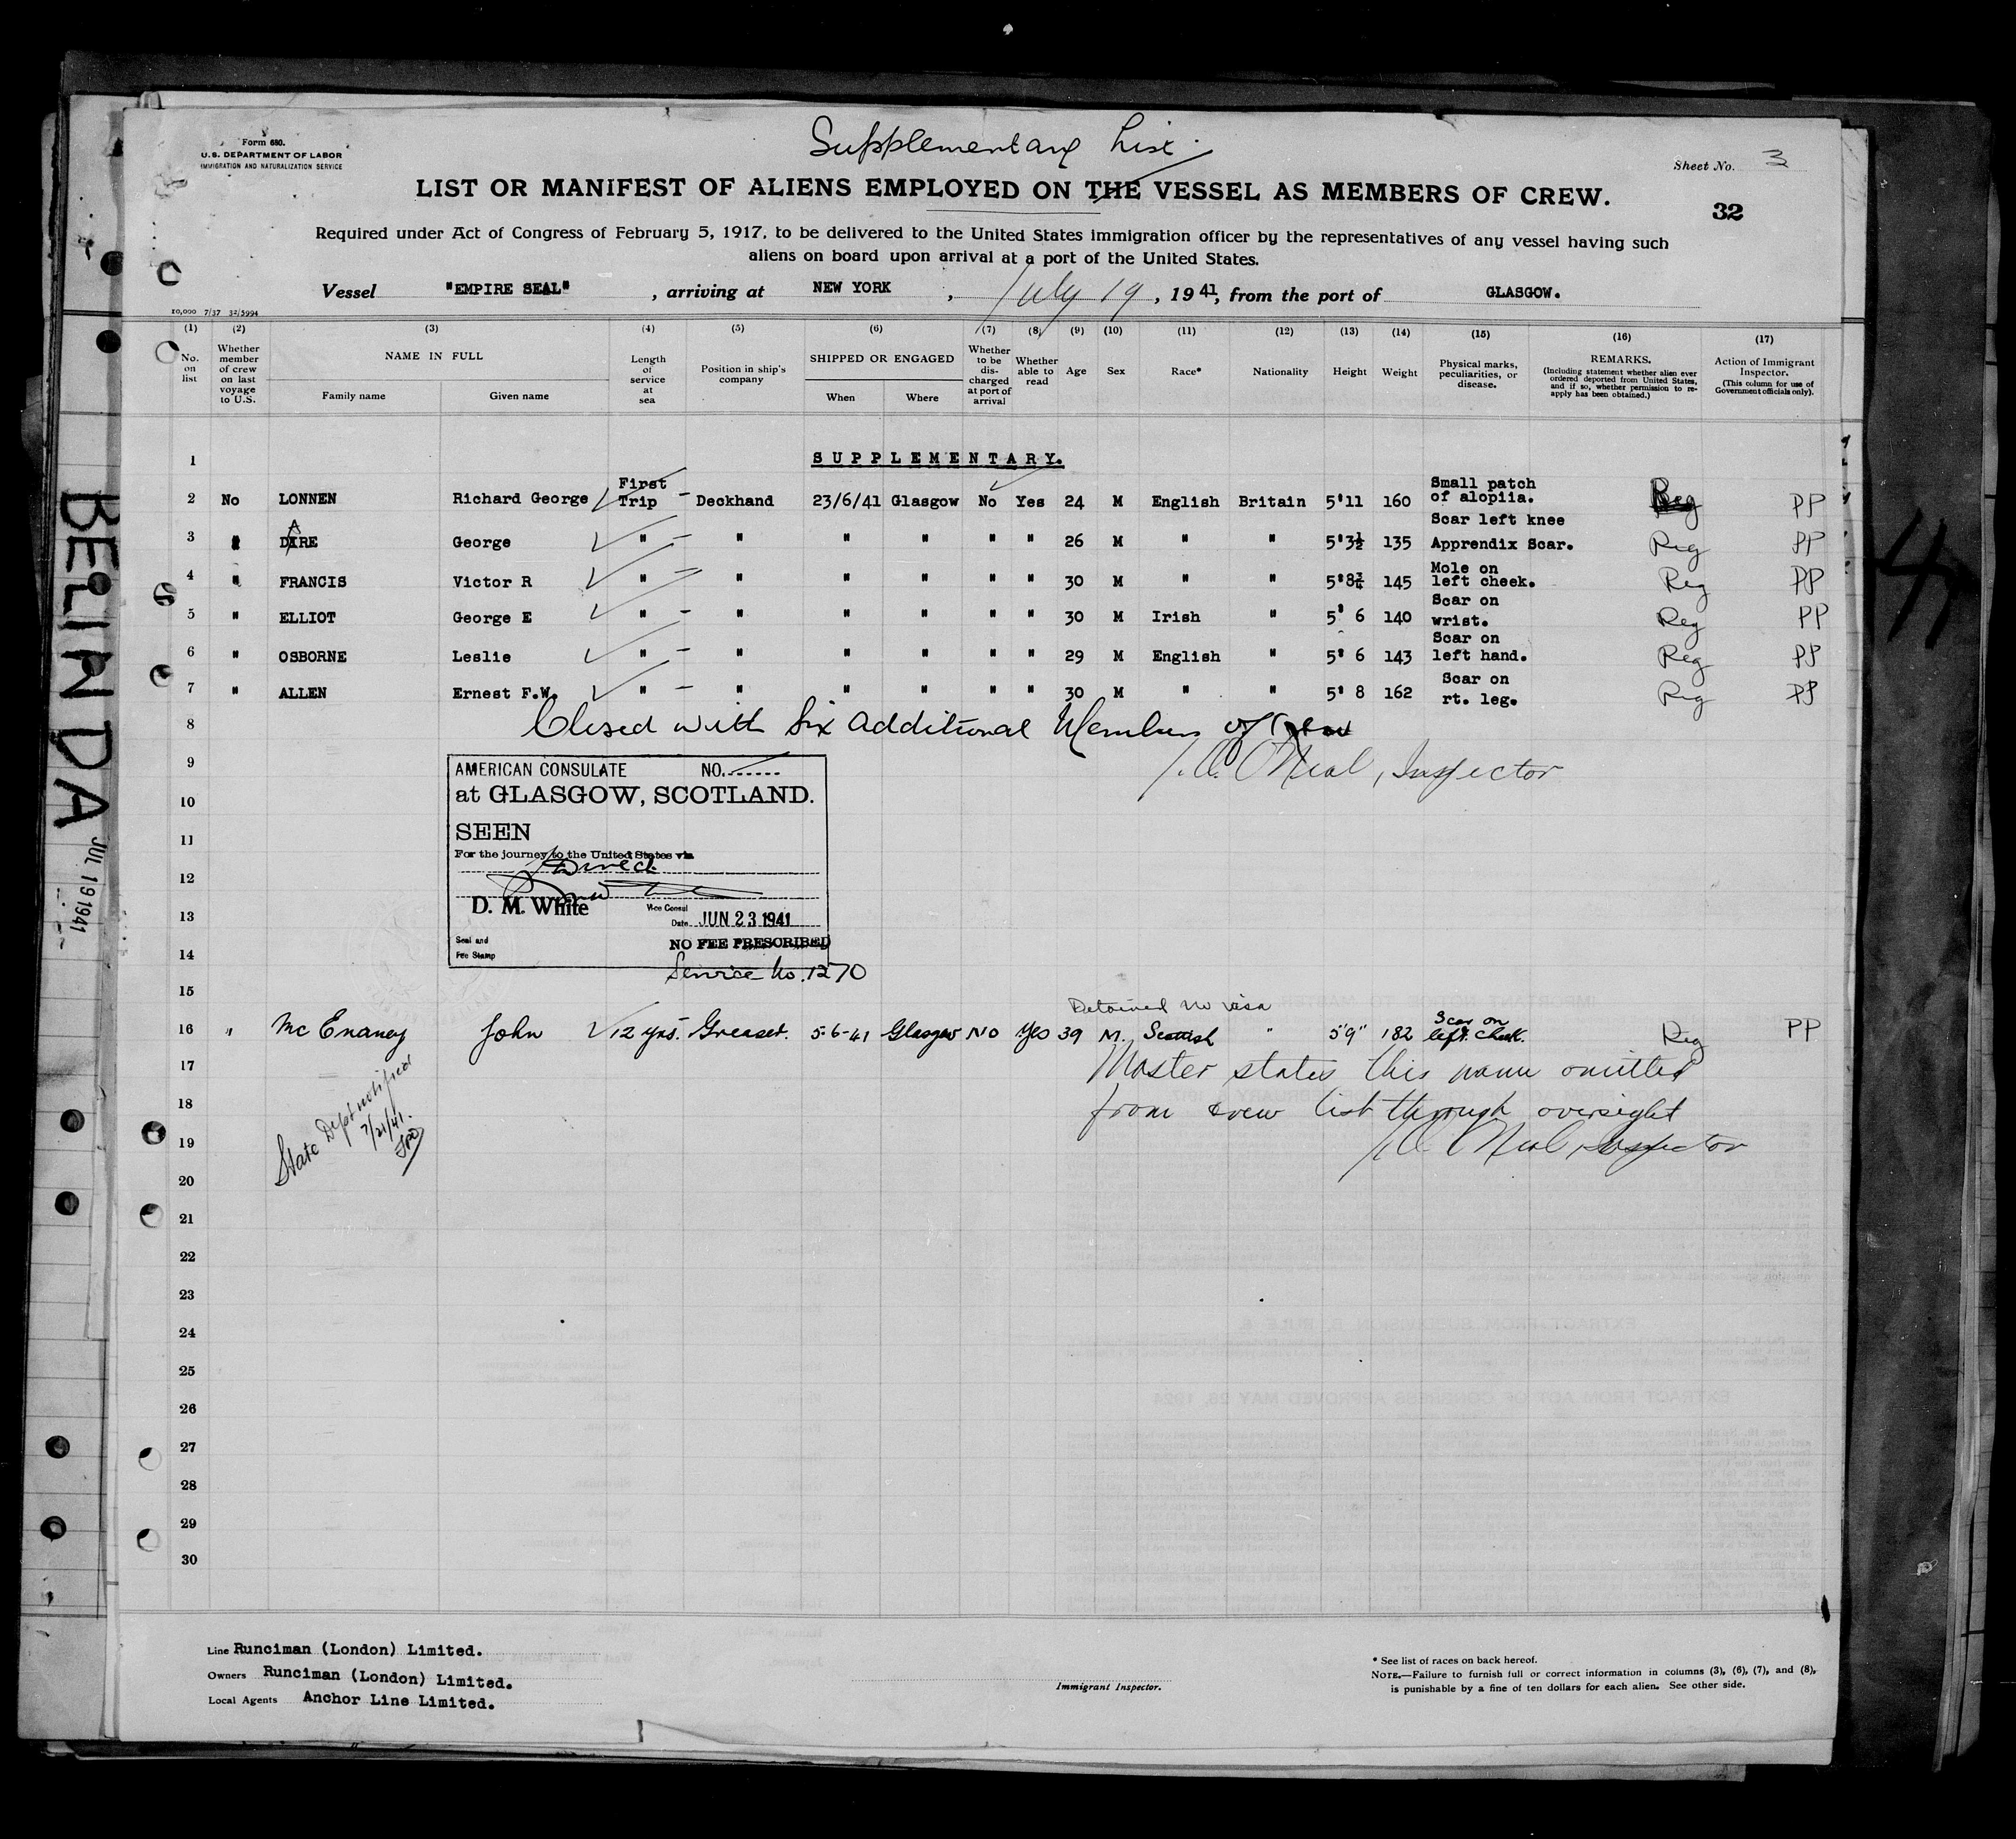 Form 680.
U.S. DEPARTMENT OF LABOR
IMMIGRATION AND NATURALIZATION SERVICE
Supplementary List.
Sheet No. 3
LIST OR MANIFEST OF ALIENS EMPLOYED ON THE VESSEL AS MEMBERS OF CREW.
32
Required under Act of Congress of February 5, 1917, to be delivered to the United States immigration officer by the representatives of any vessel having such
aliens on board upon arrival at a port of the United States.
Vessel "EMPIRE SEAL", arriving at NEW YORK, July 19, 1941, from the port of GLASGOW.
10,000 7/37 32/5994
(1) (2) (3) (4) (5) (6) (7) (8) (9) (10) (11) (12) (13) (14) (15) (16) (17)
No. on list
Whether member of crew on last voyage to U.S.
NAME IN FULL
Family name Given name
Length of service at sea
Position in ship's company
SHIPPED OR ENGAGED
When Where
Whether to be discharged at port of arrival
Whether able to read
Age
Sex
Race*
Nationality
Height
Weight
Physical marks, peculiarities, or disease.
REMARKS.
(Including statement whether alien ever ordered deported from United States, and if so, whether permission to re-apply has been obtained.)
Action of Immigrant Inspector.
(This column for use of Government officials only).
1 SUPPLEMENTARY.
2 No LONNEN Richard George First Trip - Deckhand 23/6/41 Glasgow No Yes 24 M English Britain 5'11 160 Small patch of alopiia. Reg PP
3 " DARE George " - " " " " " 26 M " " 5'3½ 135 Scar left knee Apprendix Scar. Reg PP
4 " FRANCIS Victor R " - " " " " " 30 M " " 5'8¾ 145 Mole on left cheek. Reg PP
5 " ELLIOT George E " - " " " " " 30 M Irish " 5' 6 140 Scar on wrist. Reg PP
6 " OSBORNE Leslie " - " " " " " 29 M English " 5' 6 143 Scar on left hand. Reg PP
7 " ALLEN Ernest F.W. " - " " " " " 30 M " " 5' 8 162 Scar on rt. leg. Reg PP
8 Closed with Six additional Members of Crew
9 J.A. O'Neal, Inspector
AMERICAN CONSULATE NO.
at GLASGOW, SCOTLAND.
SEEN
For the journey to the United States via
Direct
D. M. White
Vice Consul
Date JUN 23 1941
Seal and Fee Stamp
NO FEE PRESCRIBED
Service No. 1270
10
11
12
13
14
15
Detained no visa
16 " Mc Enaney John 12 yrs. Greaser. 5-6-41 Glasgow NO Yes 39 M. Scottish " 5'9" 182 Scar on left cheek. Reg PP
17 Master states this name omitted
18 from crew list through oversight
19 J.A. O'Neal, Inspector
State Dept notified
7/21/41.
20
21
22
23
24
25
26
27
28
29
30
Line Runciman (London) Limited.
Owners Runciman (London) Limited.
Local Agents Anchor Line Limited.
Immigrant Inspector.
* See list of races on back hereof.
NOTE.—Failure to furnish full or correct information in columns (3), (6), (7), and (8),
is punishable by a fine of ten dollars for each alien. See other side.
BELINDA
JUL 19 1941